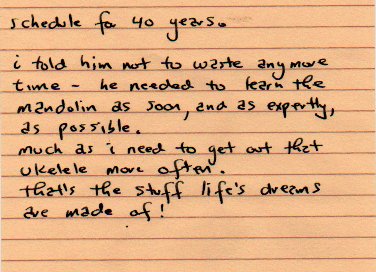 schedule for 40 years.
i told him not to waste any more
time - he needed to learn the
mandolin as soon, and as expertly,
as possible.
much as i need to get out that
ukelele more often.
that's the stuff life's dreams
are made of!